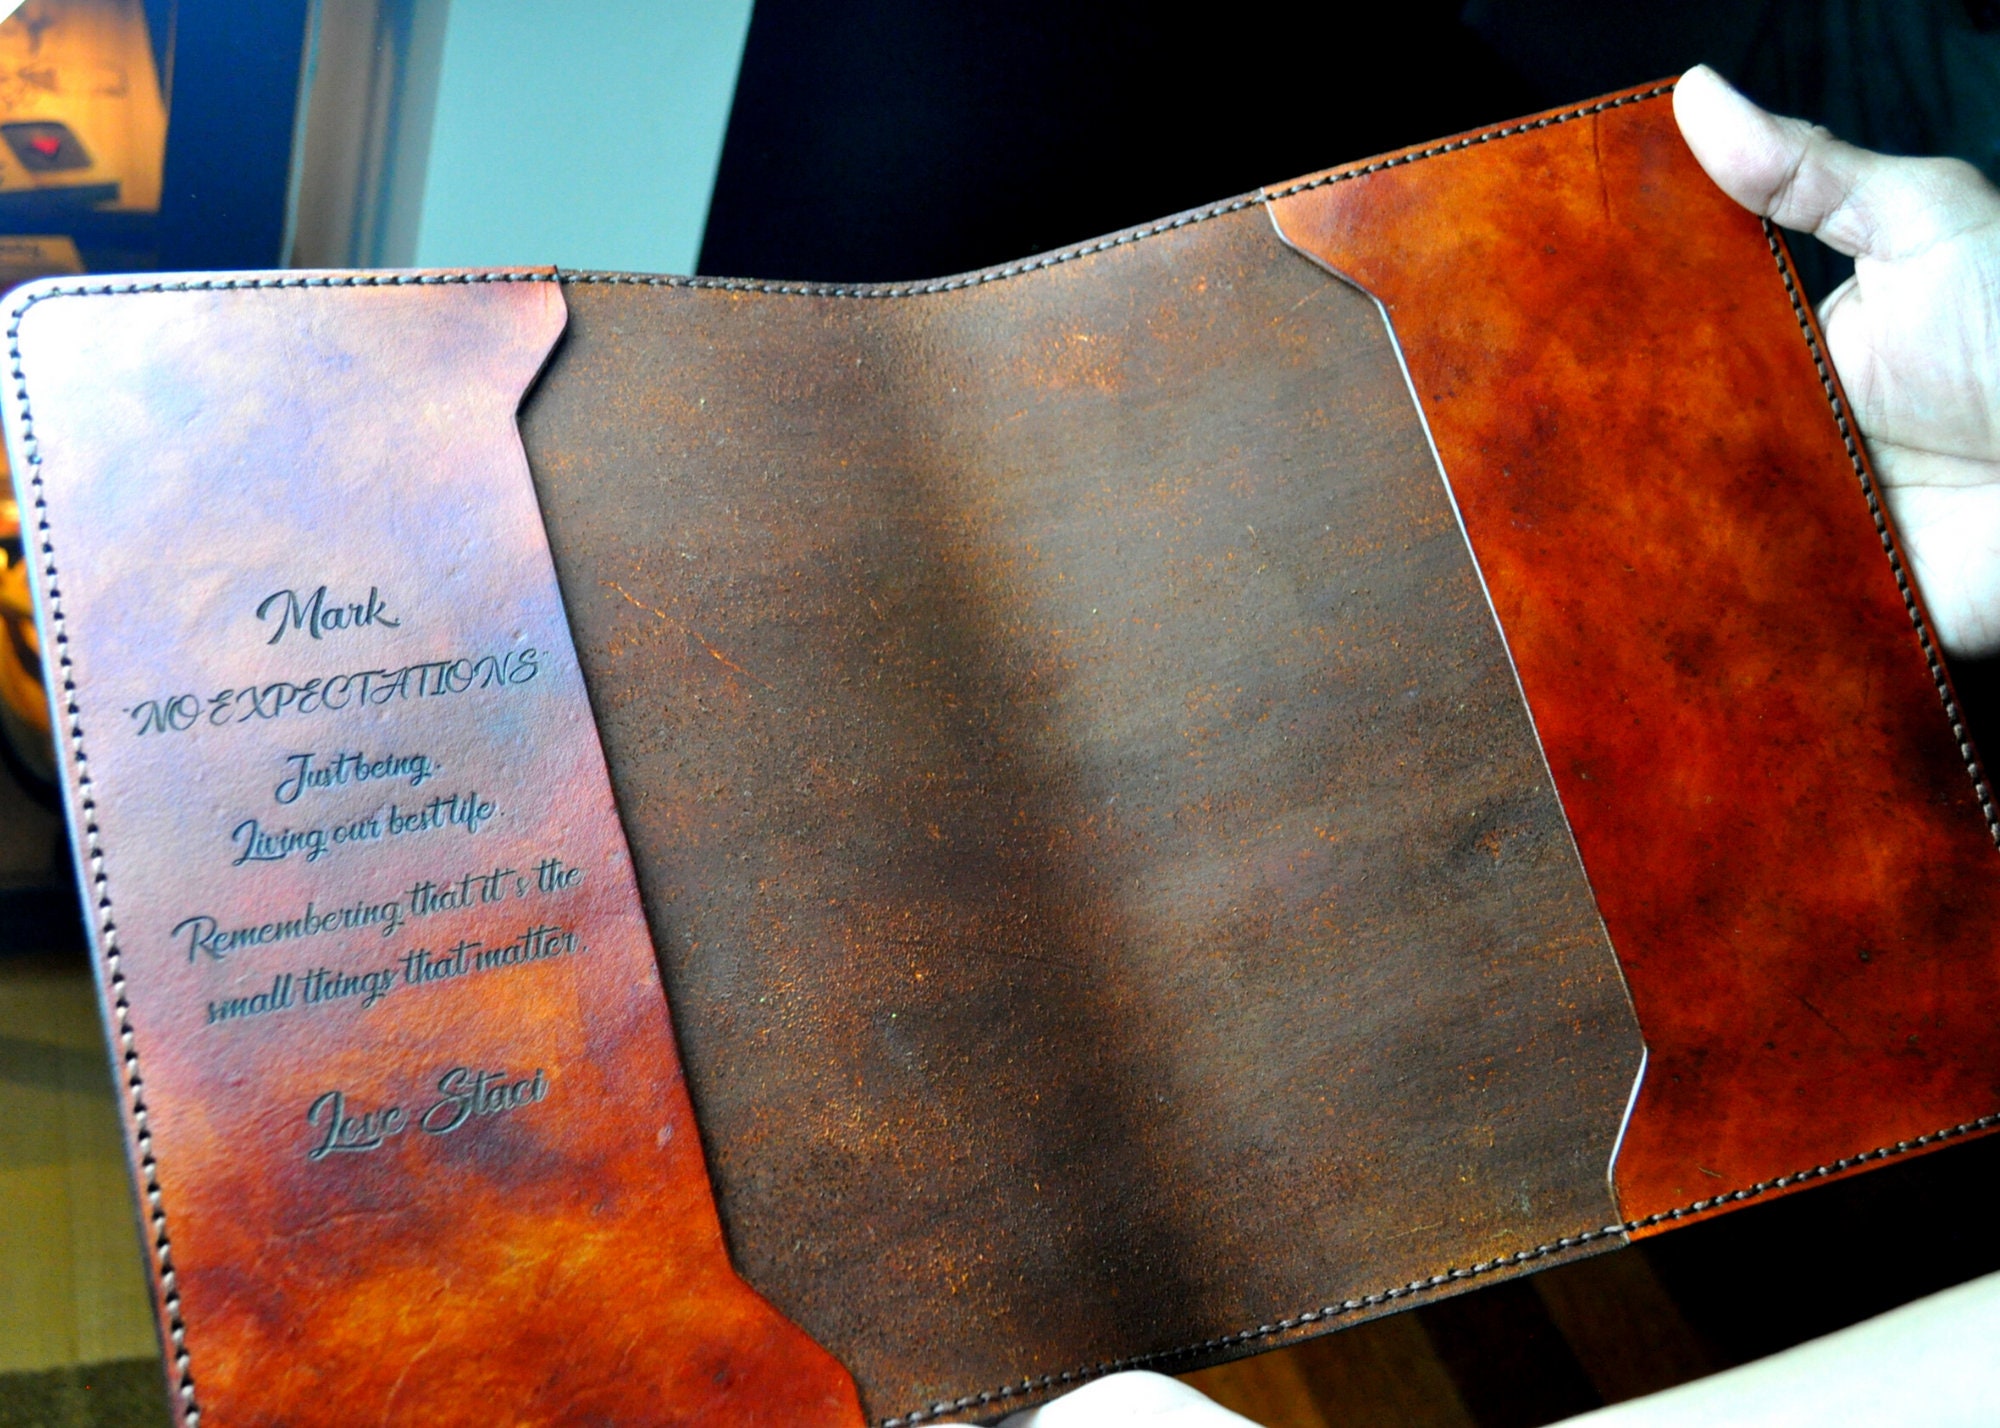 Mark,
"NO EXPECTATIONS"
Just being.
Living our best life.
Remembering that it's the
small things that matter.
Love Staci